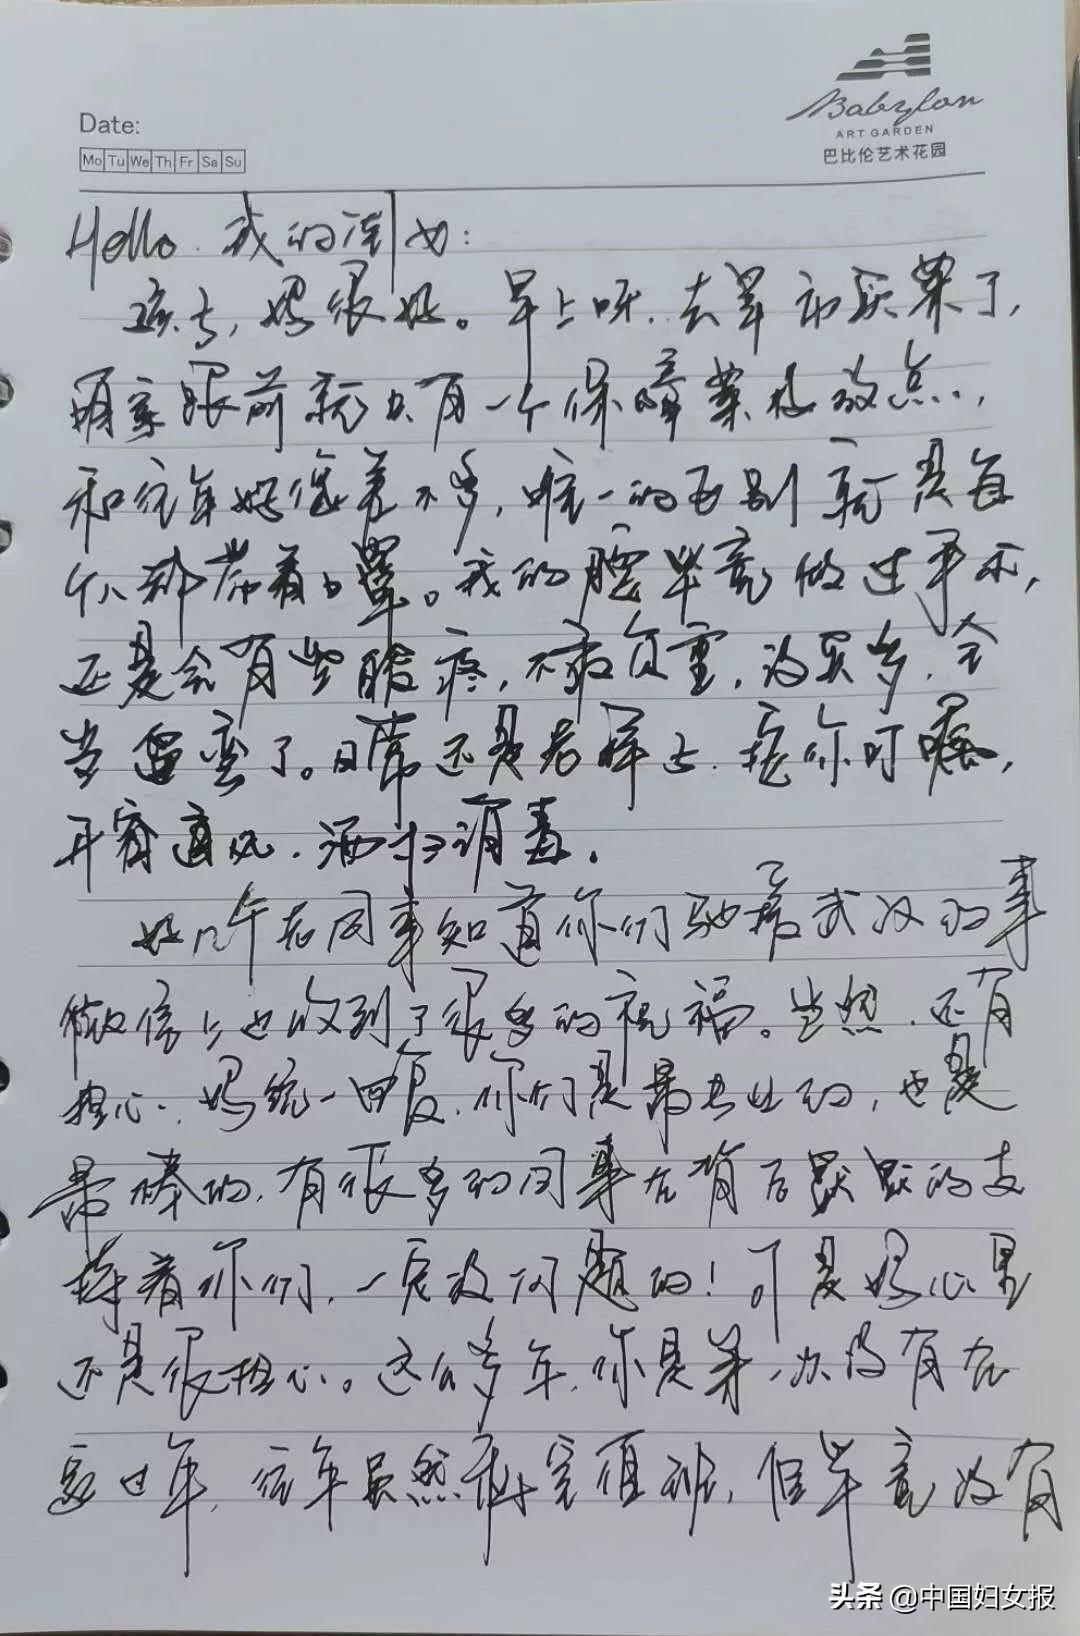 Babylon
ART GARDEN
巴比伦艺术花园
Date:
Mo Tu We Th Fr Sa Su
Hello 我的闺女:
妈很好。早上呀,去菜市买菜了,
眼前就只有一个保障菜投放点,
和往年好像差不多,唯一的区别就是每
个人都带着口罩。我的腰毕竟做过手术,
还是会有些酸疼,不敢负重,没买多,全
当遛弯了。日常还是老样子,按你叮嘱,
开窗通风,洒扫消毒。
好几个老同事知道你们驰援武汉的事
微信上也收到了很多的祝福。当然,还有
担心。妈统一回复,你们是最专业的,也是
最棒的,有很多的同事在背后默默的支
持着你们,一定没问题的!可是妈心里
还是很担心。这么多年,你是第一次没有在
家过年,往年虽然需要值班,但毕竟没有
头条 @中国妇女报